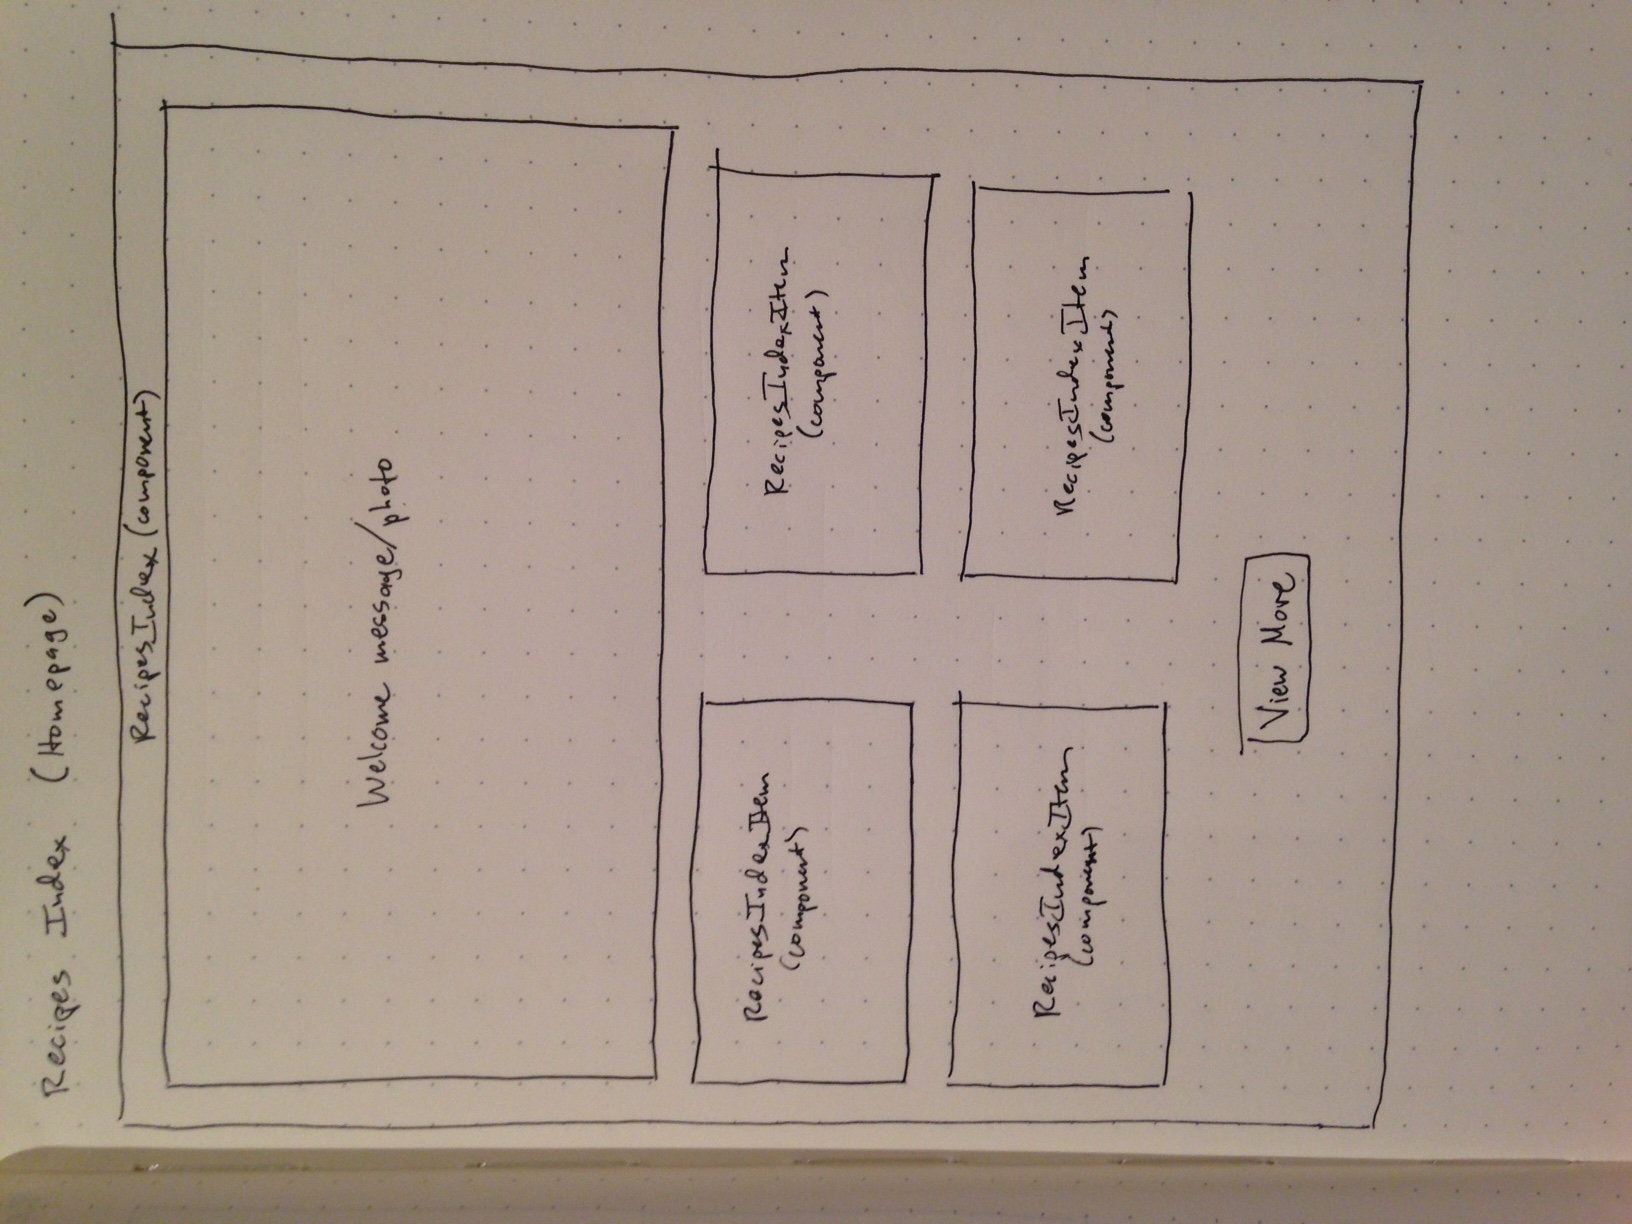 Recipes Index (Homepage)
RecipesIndex (component)
Welcome message/photo
RecipesIndexItem
(component)
RecipesIndexItem
(component)
RecipesIndexItem
(component)
RecipesIndexItem
(component)
View More